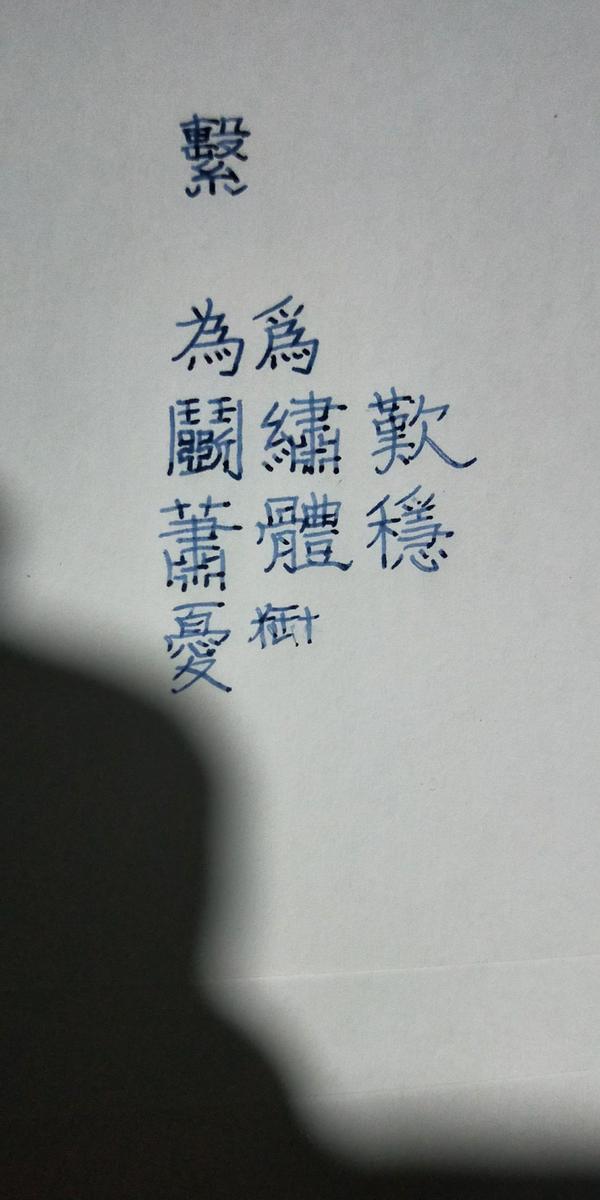 繫
為爲
鬭繡歎
蕭體穩
憂